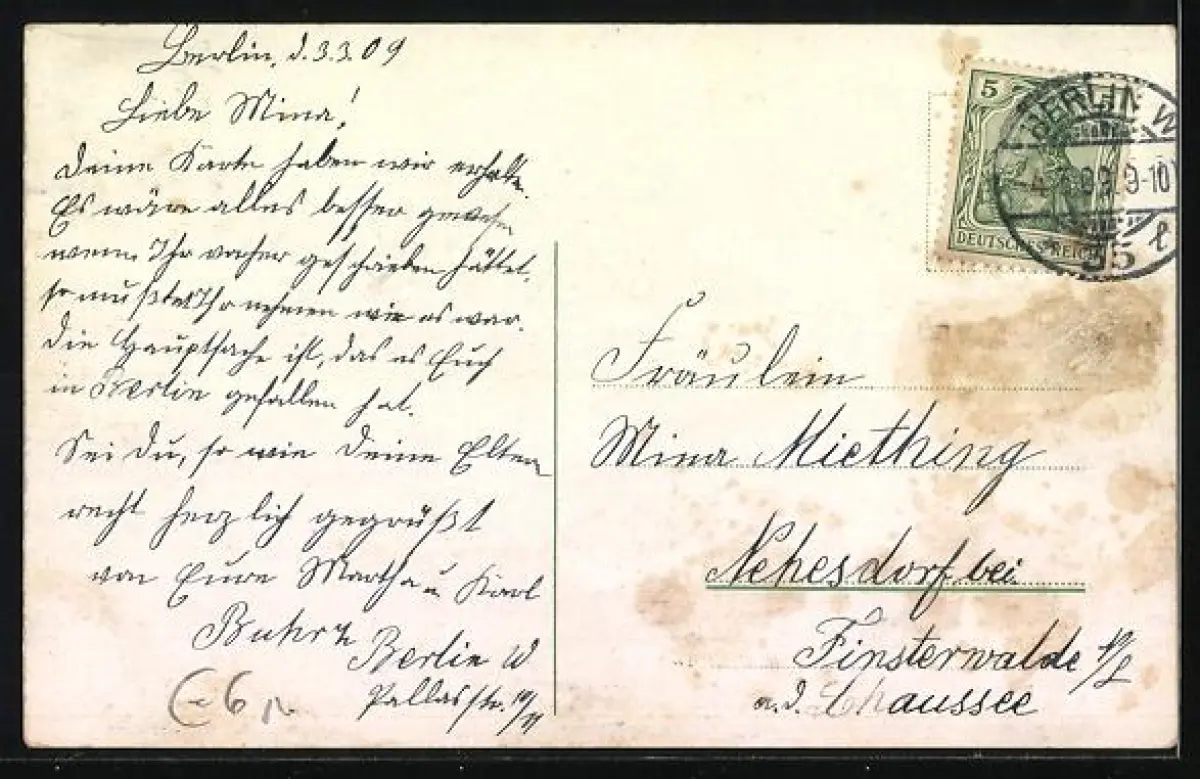 Berlin, d. 3.3.09
Liebe Mina!
Deine Karte haben wir erhalten.
Es wäre alles besser gewesen
wenn Ihr vorher geschrieben hättet,
so mußtet Ihr nehmen wie es war.
Die Hauptsache ist, das es Euch
in Berlin gefallen hat.
Sei Du, so wie Deine Eltern
recht herzlich gegrüßt
von Eure Martha u. Karl
Berlin W
Pallasstr.
5
DEUTSCHES REICH
BERLIN W
9-10
35
Fräulein
Mina Miething
Nehesdorf bei
Finsterwalde N/L
a. d. Chaussee